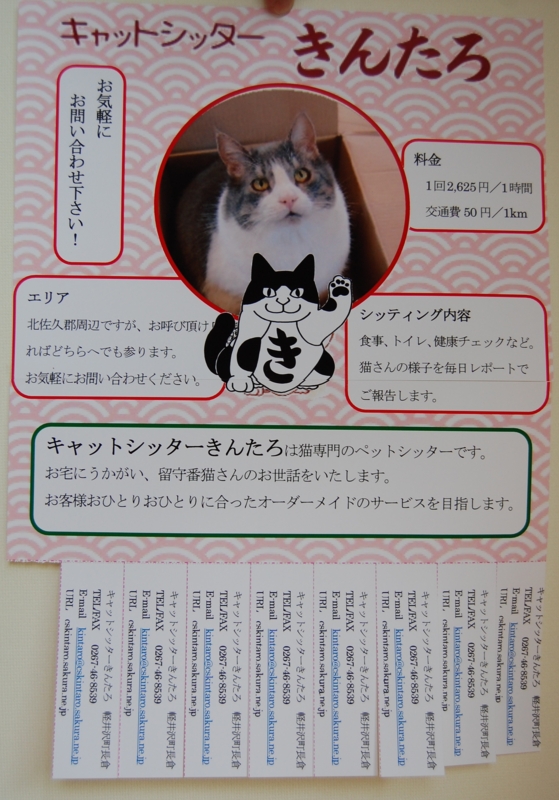 キャットシッター きんたろ
お気軽に
お問い合わせ下さい！
料金
1回2,625円／1時間
交通費 50円／1km
エリア
北佐久郡周辺ですが、お呼び頂け
ればどちらへでも参ります。
お気軽にお問い合わせください。
き
シッティング内容
食事、トイレ、健康チェックなど。
猫さんの様子を毎日レポートで
ご報告します。
キャットシッターきんたろは猫専門のペットシッターです。
お宅にうかがい、留守番猫さんのお世話をいたします。
お客様おひとりおひとりに合ったオーダーメイドのサービスを目指します。
キャットシッターきんたろ 軽井沢町長倉
TEL/FAX 0267-46-8539
E-mail kintaro@cskintaro.sakura.ne.jp
URL cskintaro.sakura.ne.jp
キャットシッターきんたろ 軽井沢町長倉
TEL/FAX 0267-46-8539
E-mail kintaro@cskintaro.sakura.ne.jp
URL cskintaro.sakura.ne.jp
キャットシッターきんたろ 軽井沢町長倉
TEL/FAX 0267-46-8539
E-mail kintaro@cskintaro.sakura.ne.jp
URL cskintaro.sakura.ne.jp
キャットシッターきんたろ 軽井沢町長倉
TEL/FAX 0267-46-8539
E-mail kintaro@cskintaro.sakura.ne.jp
URL cskintaro.sakura.ne.jp
キャットシッターきんたろ 軽井沢町長倉
TEL/FAX 0267-46-8539
E-mail kintaro@cskintaro.sakura.ne.jp
URL cskintaro.sakura.ne.jp
キャットシッターきんたろ 軽井沢町長倉
TEL/FAX 0267-46-8539
E-mail kintaro@cskintaro.sakura.ne.jp
URL cskintaro.sakura.ne.jp
キャットシッターきんたろ 軽井沢町長倉
TEL/FAX 0267-46-8539
E-mail kintaro@cskintaro.sakura.ne.jp
URL cskintaro.sakura.ne.jp
キャットシッターきんたろ 軽井沢町長倉
TEL/FAX 0267-46-8539
E-mail kintaro@cskintaro.sakura.ne.jp
URL cskintaro.sakura.ne.jp